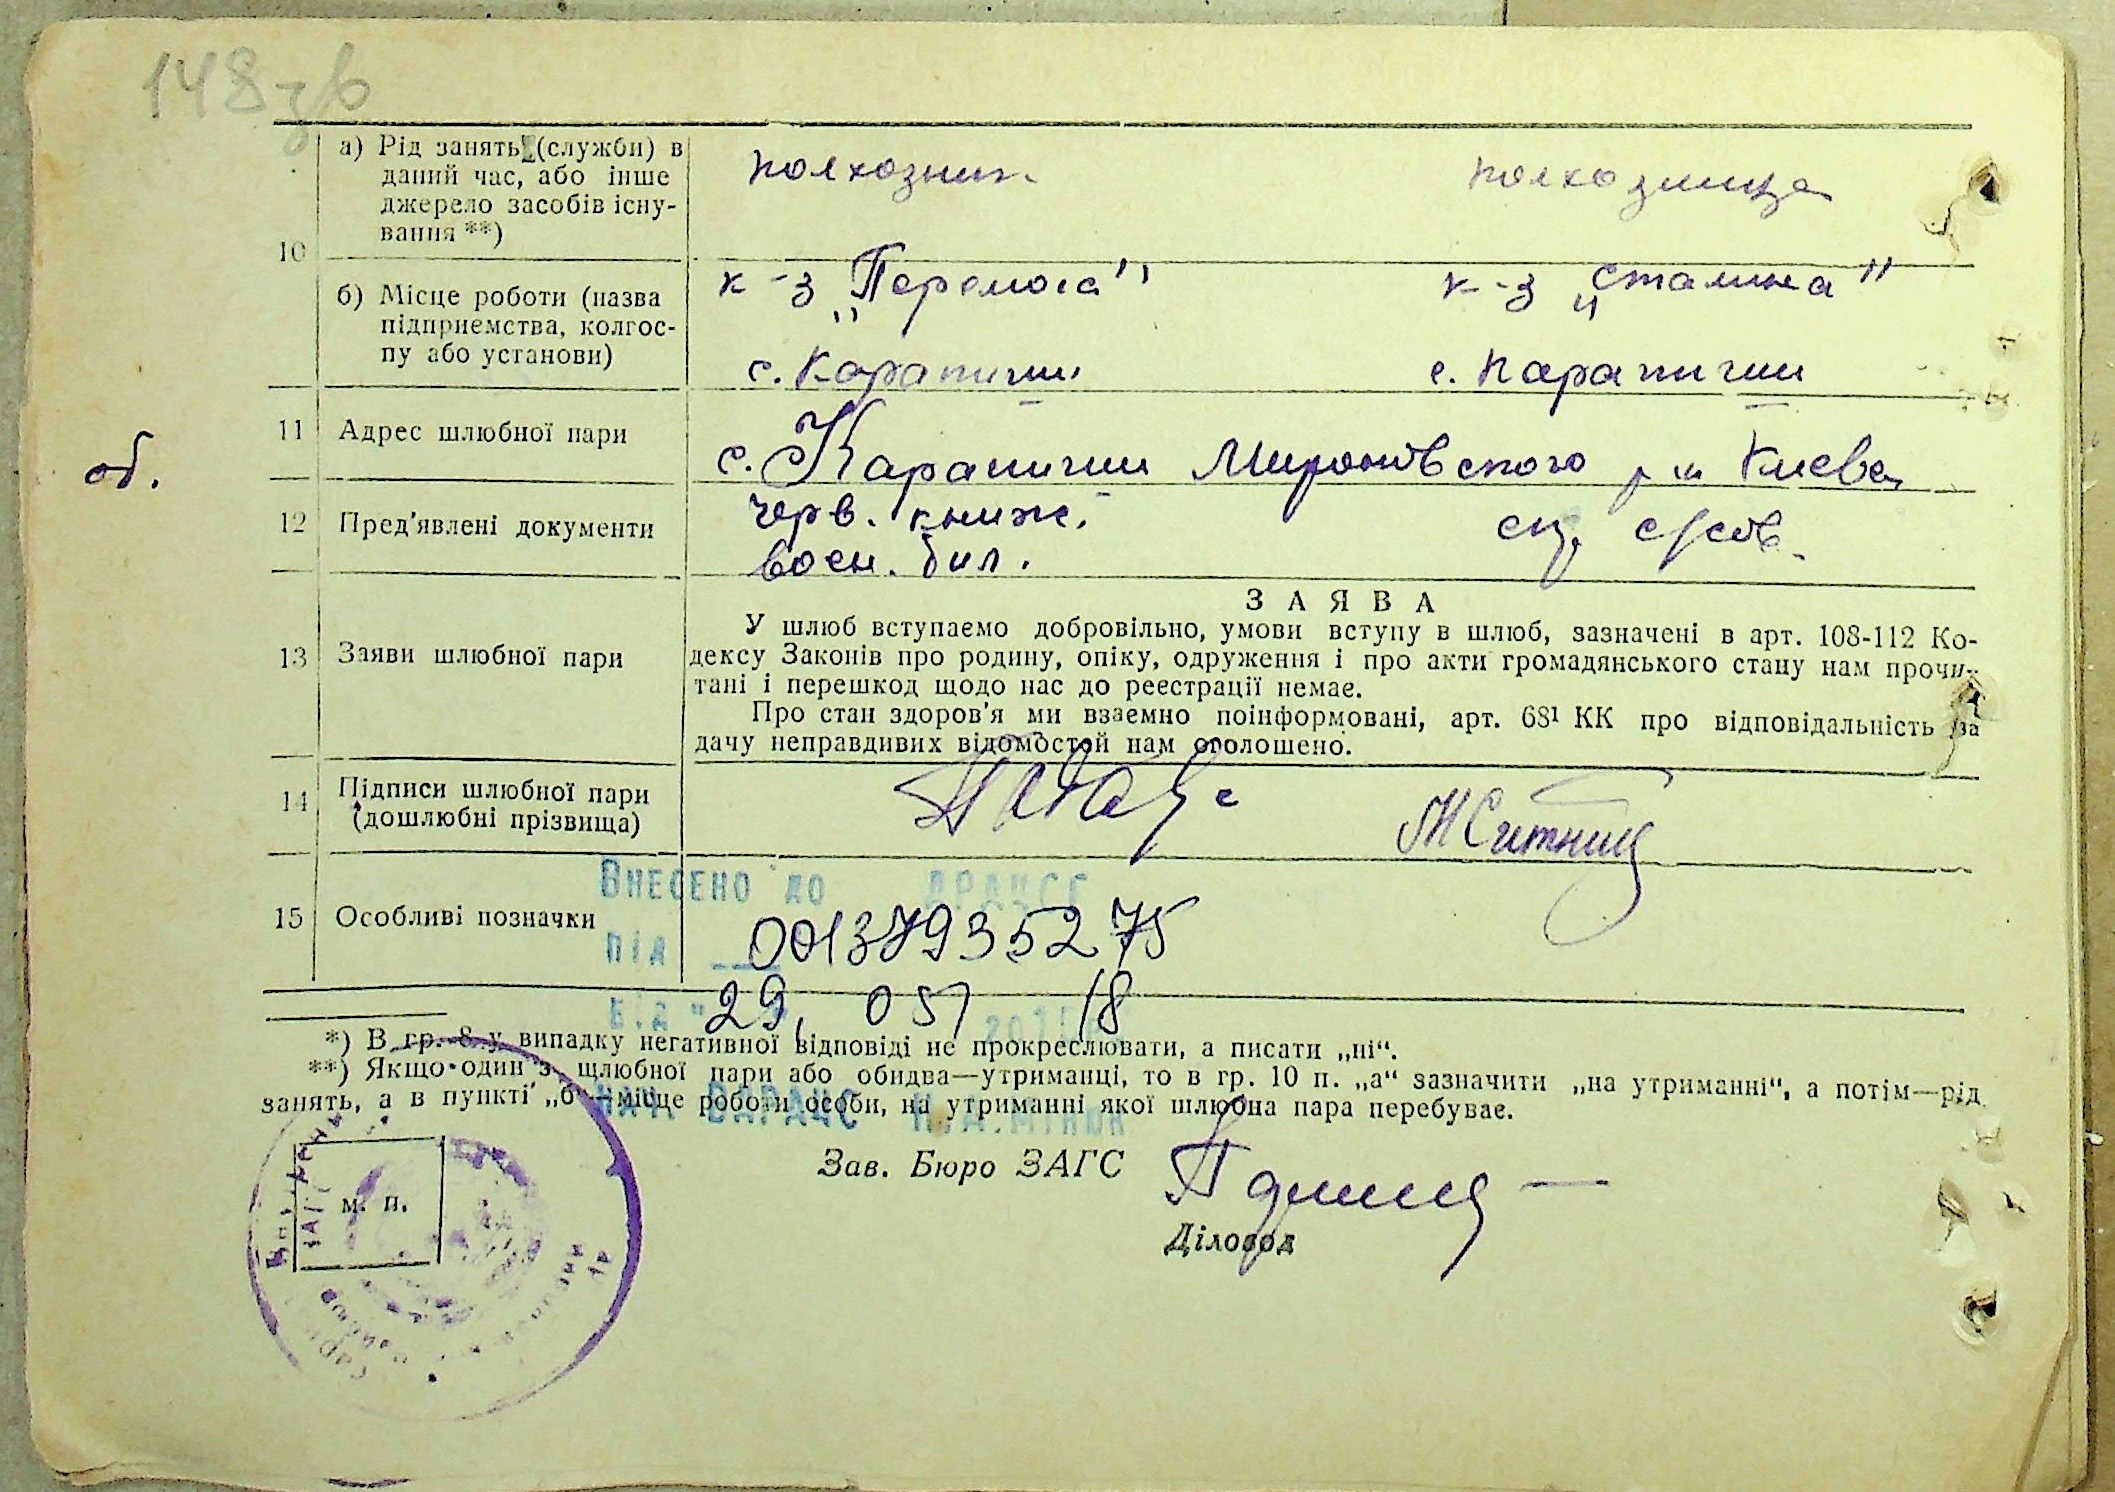 148 зв
а) Рід занять (служби) в
даний час, або інше
джерело засобів існу-
вання **)
колхозник
колхозница
10
б) Місце роботи (назва
підприємства, колгос-
пу або установи)
к-з „Перемога"
к-з „Сталина"
с. Карапиши
с. Карапиши
об.
11 Адрес шлюбної пари
с. Карапиши Миронівского р-н Києва
12 Пред'явлені документи
черв. книж.
воен. бил.
З А Я В А
13 Заяви шлюбної пари
У шлюб вступаємо добровільно, умови вступу в шлюб, зазначені в арт. 108-112 Ко-
дексу Законів про родину, опіку, одруження і про акти громадянського стану нам прочи-
тані і перешкод щодо нас до реєстрації немає.
Про стан здоров'я ми взаємно поінформовані, арт. 68¹ КК про відповідальність за
дачу неправдивих відомостей нам оголошено.
14 Підписи шлюбної пари
(дошлюбні прізвища)
Внесено до ДРАЦСГ
15 Особливі позначки
00137935275
під
від "29" 05 2018
*) В гр. 8 у випадку негативної відповіді не прокреслювати, а писати „ні“.
**) Якщо один з шлюбної пари або обидва—утриманці, то в гр. 10 п. „а“ зазначити „на утриманні“, а потім—рід
занять, а в пункті „б“—місце роботи особи, на утриманні якої шлюбна пара перебуває.
Зав. Бюро ЗАГС
м. п.
Діловод